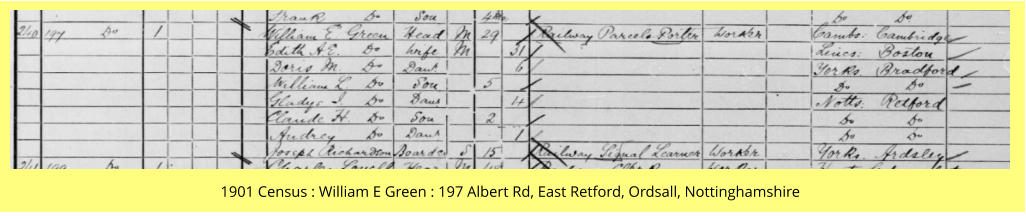 Frank Do Son 4 Do Do
240 197 Do 1 William E Green Head M 29 Railway Parcels Porter Worker Cambs. Cambridge
Edith A E Do Wife M 31 Lincs. Boston
Doris M. Do Daur 6 Yorks. Bradford
William L. Do Son 5 Do Do
Gladys I. Do Daur 4 Notts. Retford
Claude H. Do Son 2 Do Do
Audrey Do Daur 1 Do Do
Joseph Richardson Boarder S 15 Railway Signal Learner Worker Yorks. Ardsley
241 199 Do 1 Head M
1901 Census : William E Green : 197 Albert Rd, East Retford, Ordsall, Nottinghamshire